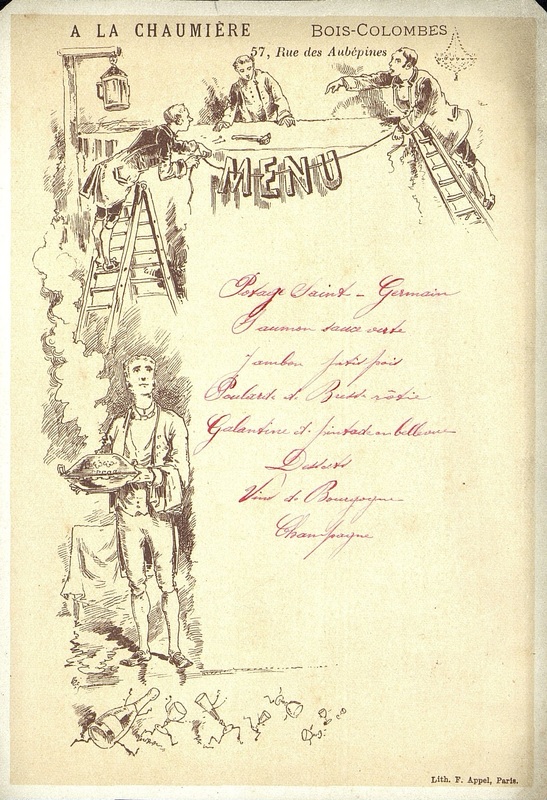 A LA CHAUMIÈRE BOIS-COLOMBES
57, Rue des Aubépines
MENU
Potage Saint-Germain
Saumon sauce verte
Jambon petit pois
Poularde de Bresse rôtie
Galantine de pintade en bellevue
Desserts
Vins de Bourgogne
Champagne
Lith. F. Appel, Paris.